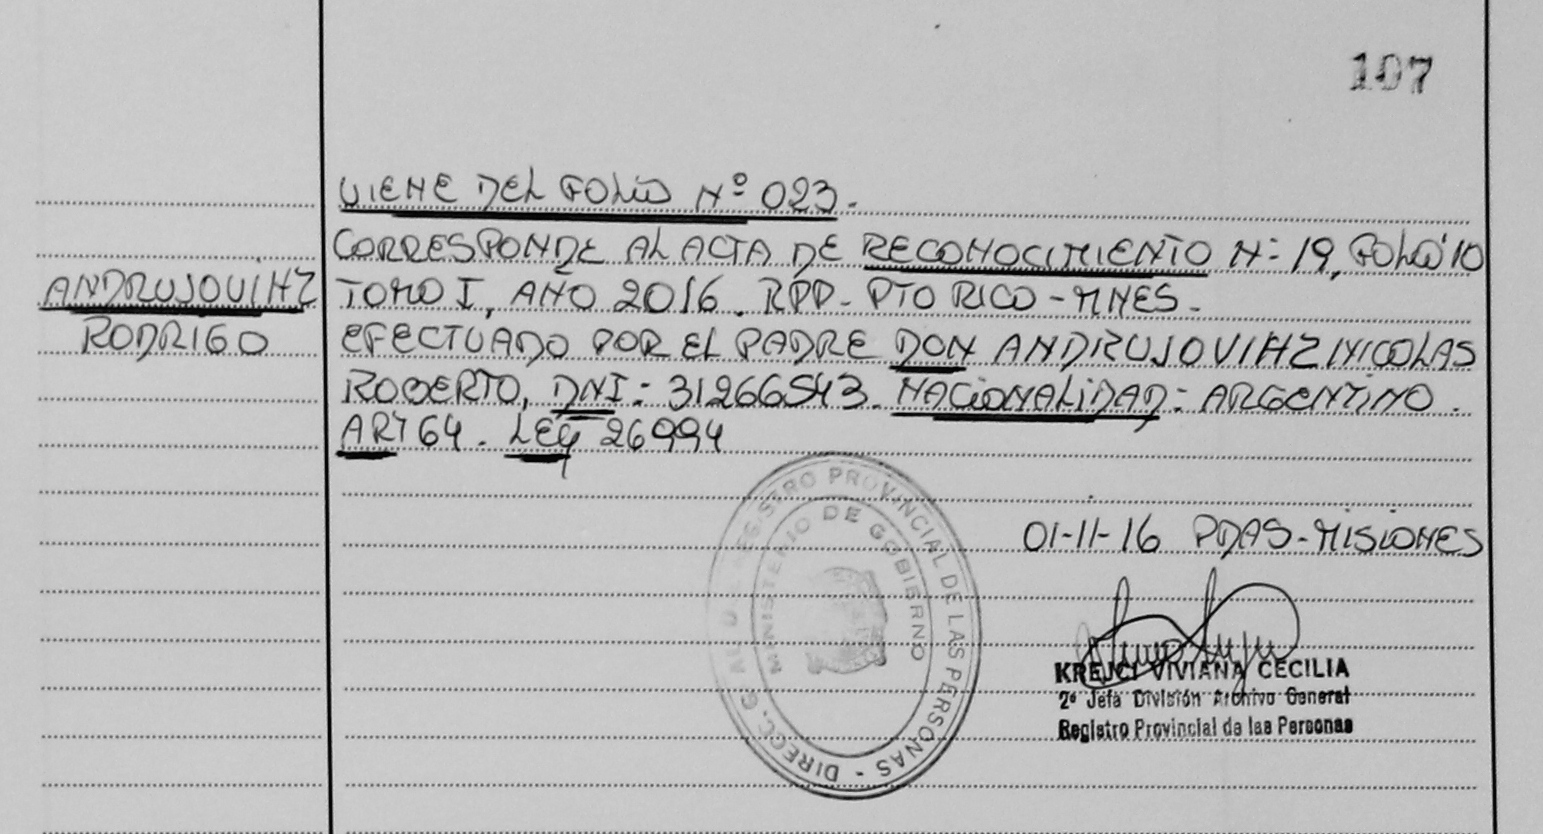 107
VIENE DEL FOLIO Nº 023.
CORRESPONDE AL ACTA DE RECONOCIMIENTO Nº 19, FOLIO 10
ANDRUJOVIHZ
TOMO I, AÑO 2016. RPP- PTO RICO - MNES.
RODRIGO
EFECTUADO POR EL PADRE DON ANDRUJOVIHZ NICOLAS
ROBERTO, DNI: 31266543. NACIONALIDAD: ARGENTINO.
ART 64. LEY 26994
01-11-16 PDAS-MISIONES
DIRECC. GRAL DEL REGISTRO PROVINCIAL DE LAS PERSONAS -
MINISTERIO DE GOBIERNO
KREJCI VIVIANA CECILIA
2º Jefa División Archivo General
Registro Provincial de las Personas